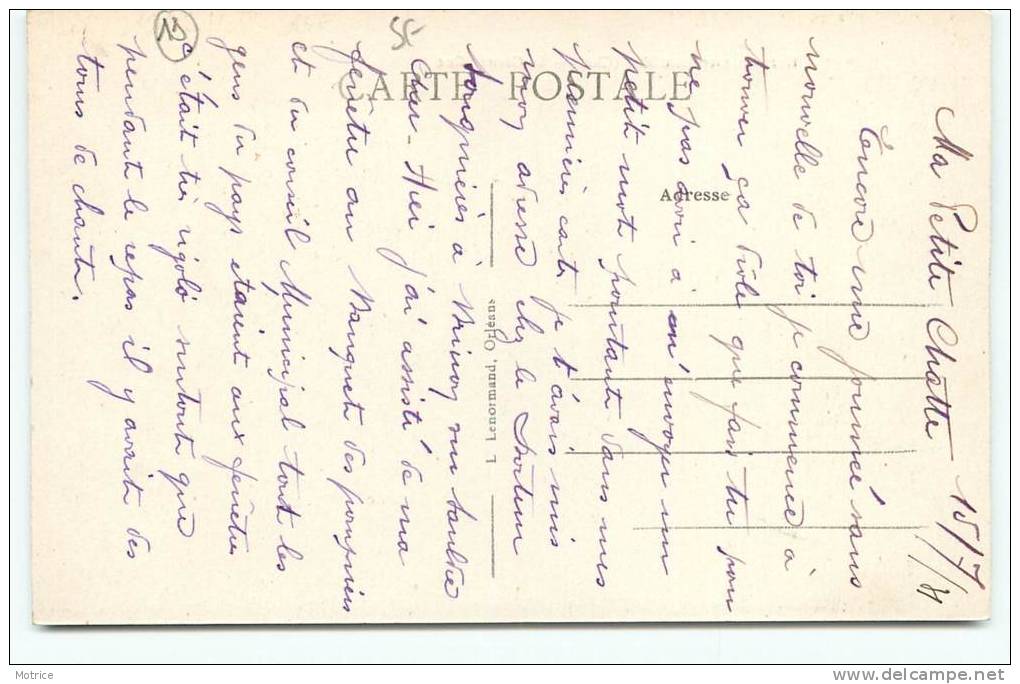 Ma Petite Chatte 15/7/11
Encore une journné sans
nouvelle de toi je commence à
trouver ça drole que fais tu pour
ne pas avoir à m'envoyer un
petit mot pourtant dans mes
premières carte je t'avais mis
mon adresse chez le Docteur
à Brinon sur Sauldre
Cher - Hier j'ai assisté de ma
fenêtre au Banquet des pompiers
et du conseil Municipal tout les
gens du pays étaient aux fenêtres
c'était très rigolo surtout que
pendant le repas il y avait des
tours de chants.
CARTE POSTALE
Adresse
L Lenormand, Orléans
13
Motrice
delcampe.net